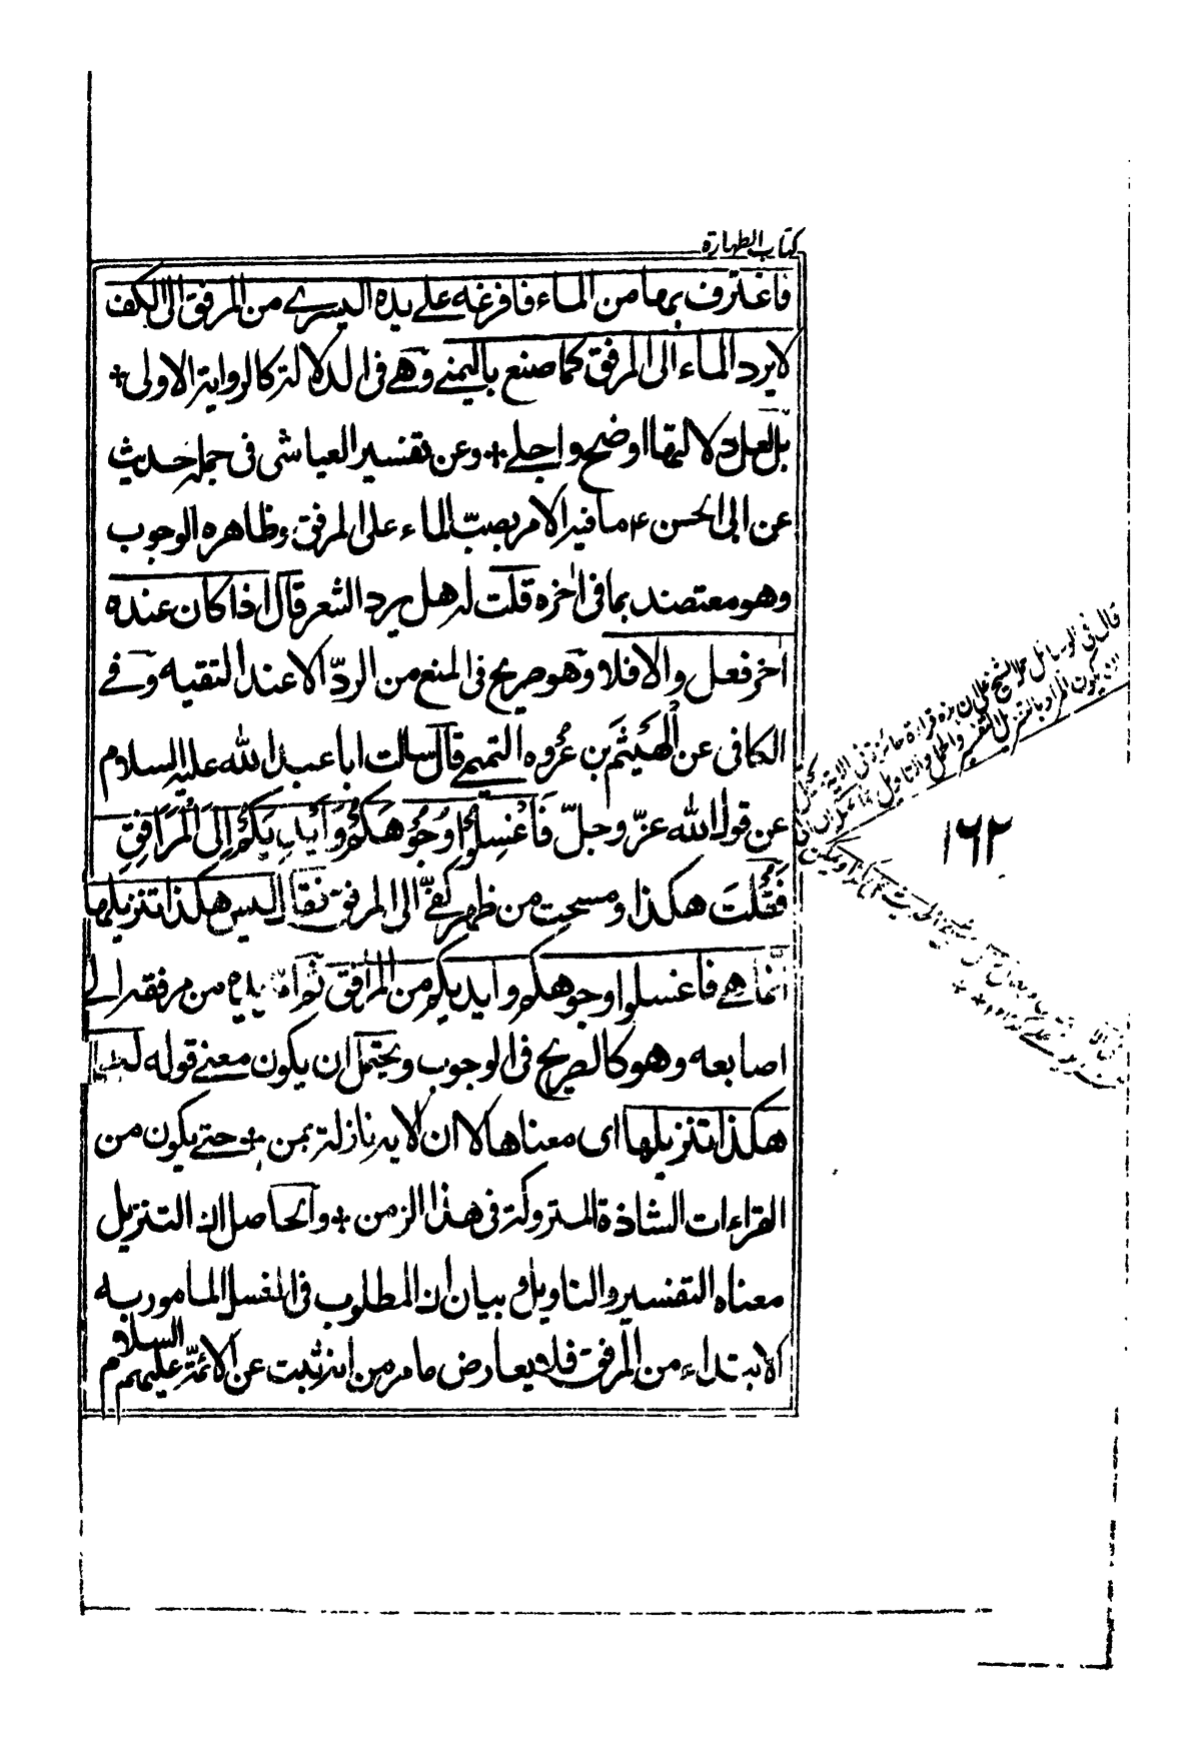 كتاب الطهارة
فاغترف بها من الماء فافرغه على يده اليسرے من المرفق الى الكف
لا يرد الماء الى المرفق كما صنع باليمنے وهے فى الدلالة كالرواية الاولى +
بل لعل دلالتها اوضح واجلے + وعن تفسير العياشى فى جملة حديث
عن ابى الحسن ع ما فيه الامر بصبّ الماء على المرفق وظاهره الوجوب
وهو معتضد بما فى اخره قلت له هل يرد الشعر قال اذا كان عنده
اخر فعل والا فلا وهو صريح فى المنع من الردّ الا عند التقيه وفے
الكافى عن الهَيثَم بن عُروه التميمے قال سالت ابا عبد الله عليه السلام
عن قوله الله عزّ وجلّ فَاغْسِلُوا وُجُوُهَكُمْ وَاَيْدِيَكُمْ اِلَى الْمَرَافِقِ
فَقُلتَ هكذا ومسحت من ظهر كفّے الى المرفق فقال ليس هكذا تنزيلها
انّما هے فاغسلوا وجوهكم وايديكم من المرافق ثم امرّ يده من مرفقه الى
اصابعه وهو كالصريح فى الوجوب ويحتمل ان يكون معنے قوله ليس
هكذا تنزيلها اى معناها لا ان الايه نازلة بمن + حتے يكون من
القراءات الشاذة المتروكة فى هذا الزمن + والحاصل ان التنزيل
معناه التفسير والتاويل وبيان ان المطلوب فى الغسل المامور به
الابتداء من المرفق فلا يعارض ما مر من انه ثبت عن الائمّة عليهم السلام
قال فى الوسائل
١٦٢